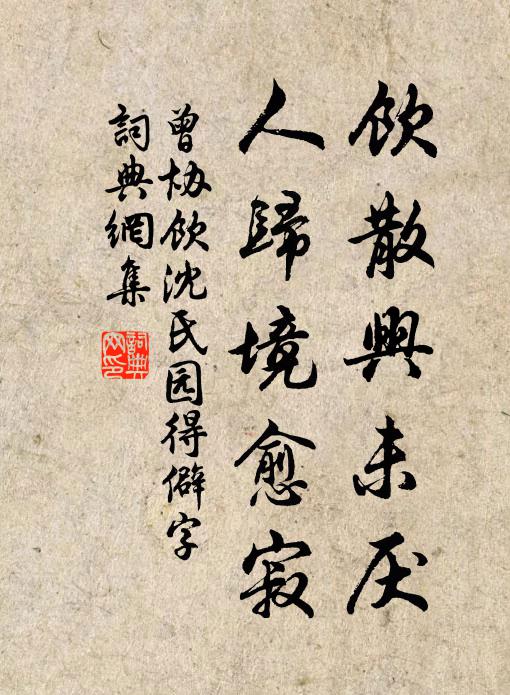 飲散興未厌
人歸境愈寂
曾协飲沈氏园得僻字
詞典網集
詞典網印